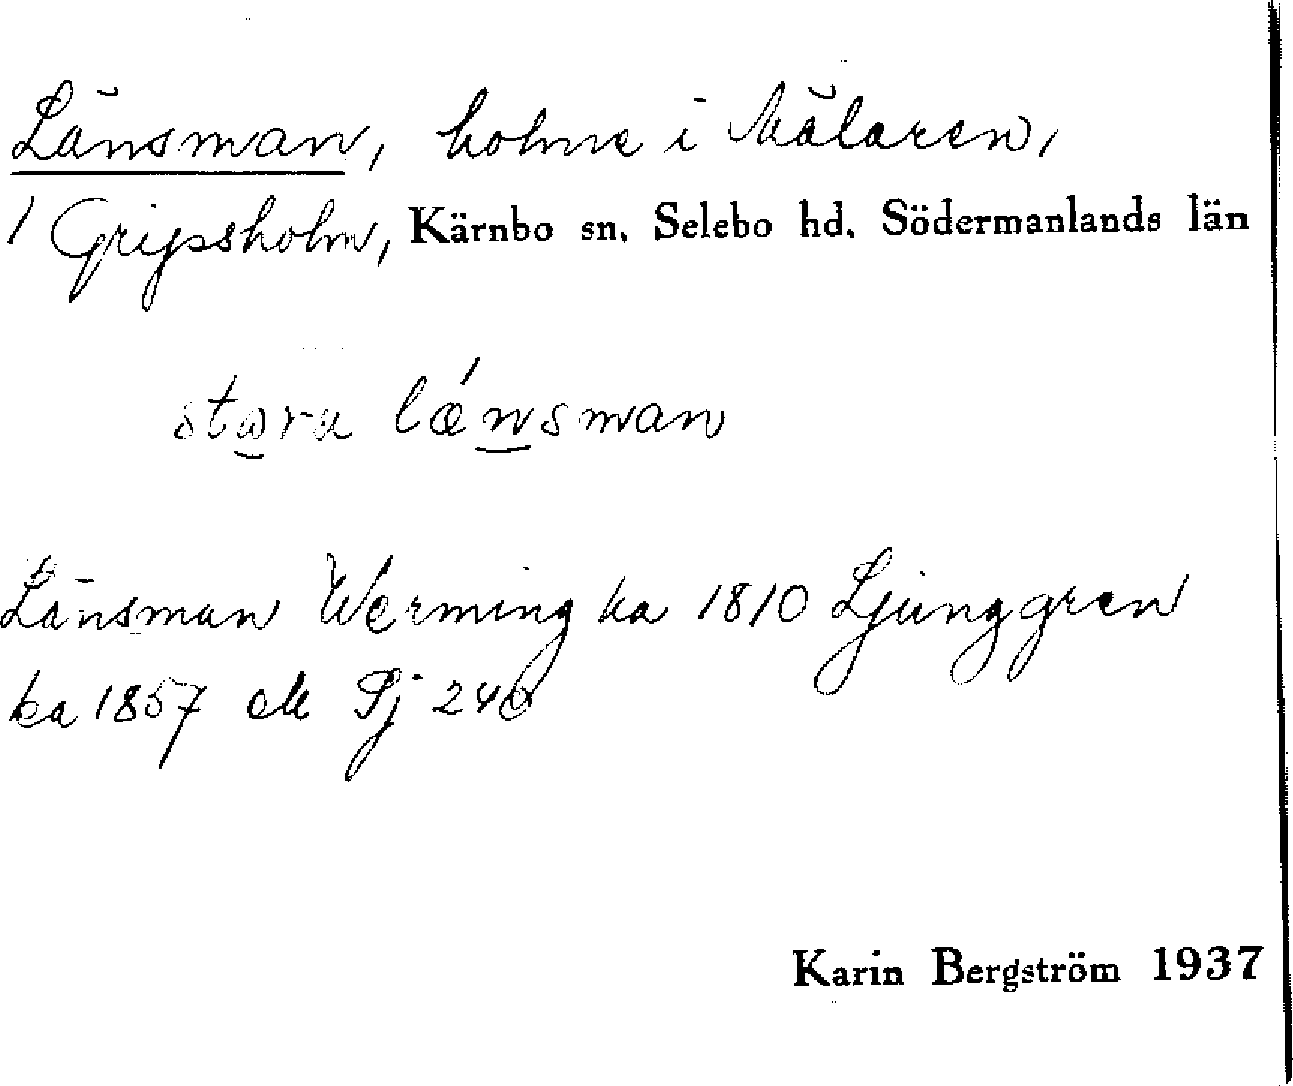 Länsman, holme i Mälaren,
/ Gripsholm, Kärnbo sn. Selebo hd. Södermanlands län
stora lǽnsman
Länsman Werming ka 1810 Ljunggren
ka 1857 ek Pj 240
Karin Bergström 1937